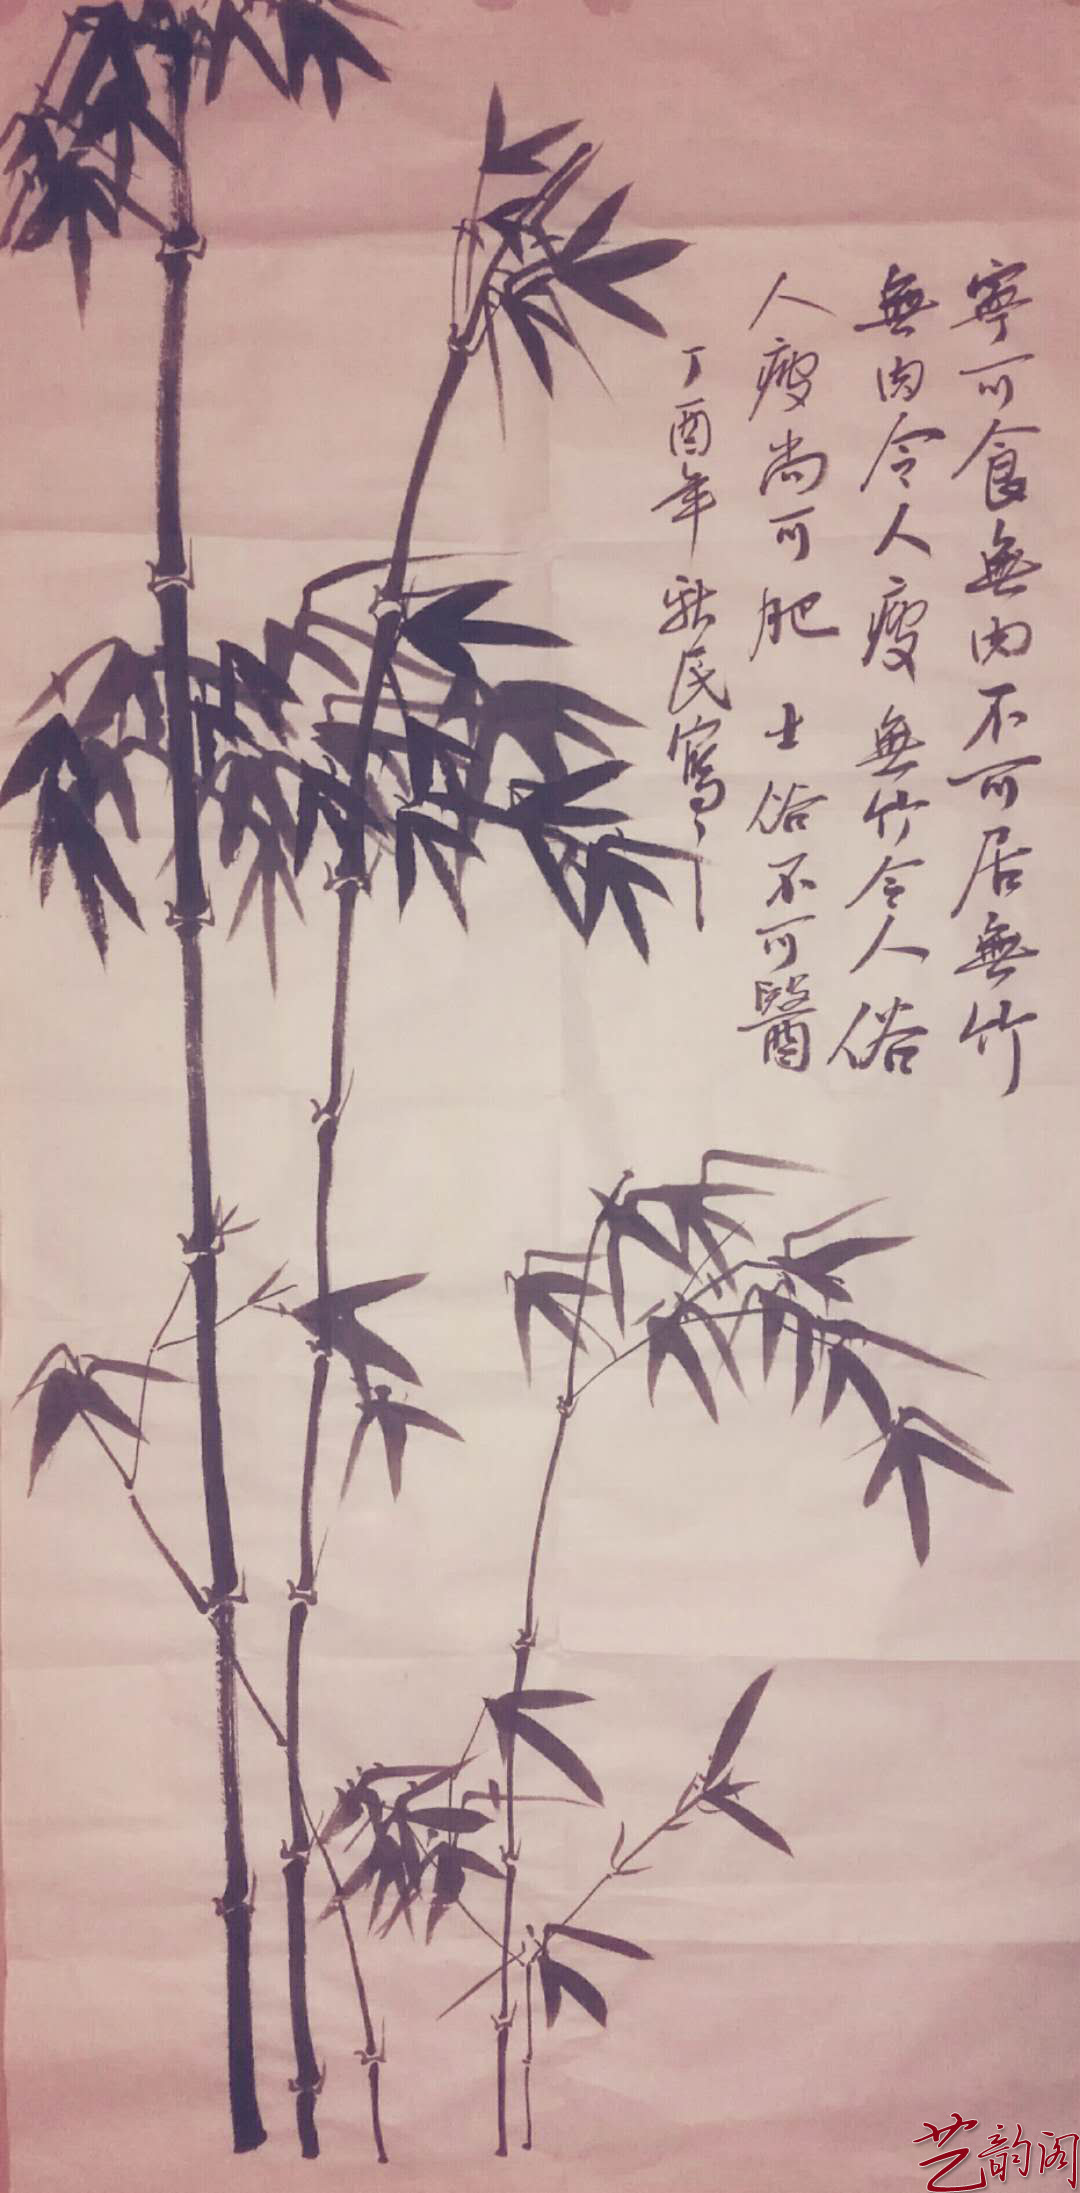 寧可食無肉不可居無竹
無肉令人瘦無竹令人俗
人瘦尚可肥士俗不可醫
丁酉年 民寫
艺韵阁